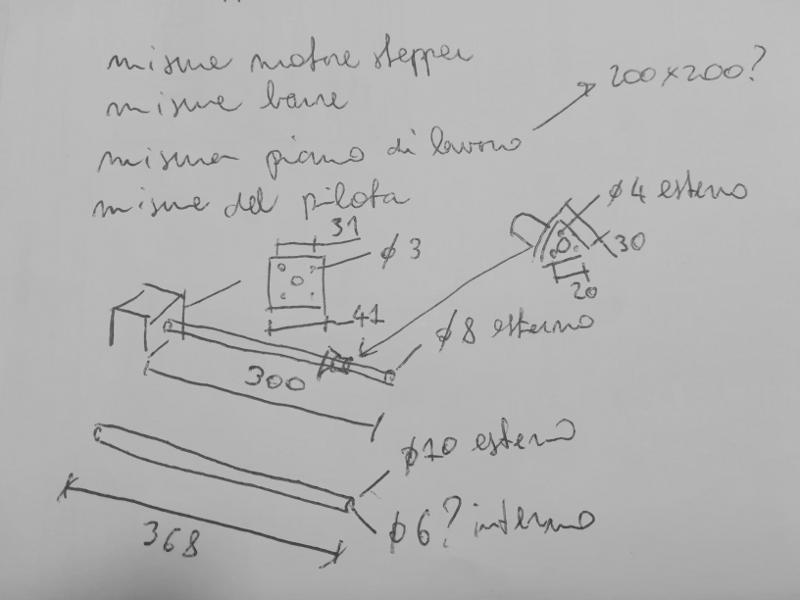 misure motore stepper
misure barre
200x200?
misura piano di lavoro
misure del pilota
ϕ4 esterno
31
ϕ3
30
20
41
ϕ8 esterno
300
ϕ10 esterno
ϕ6? interno
368